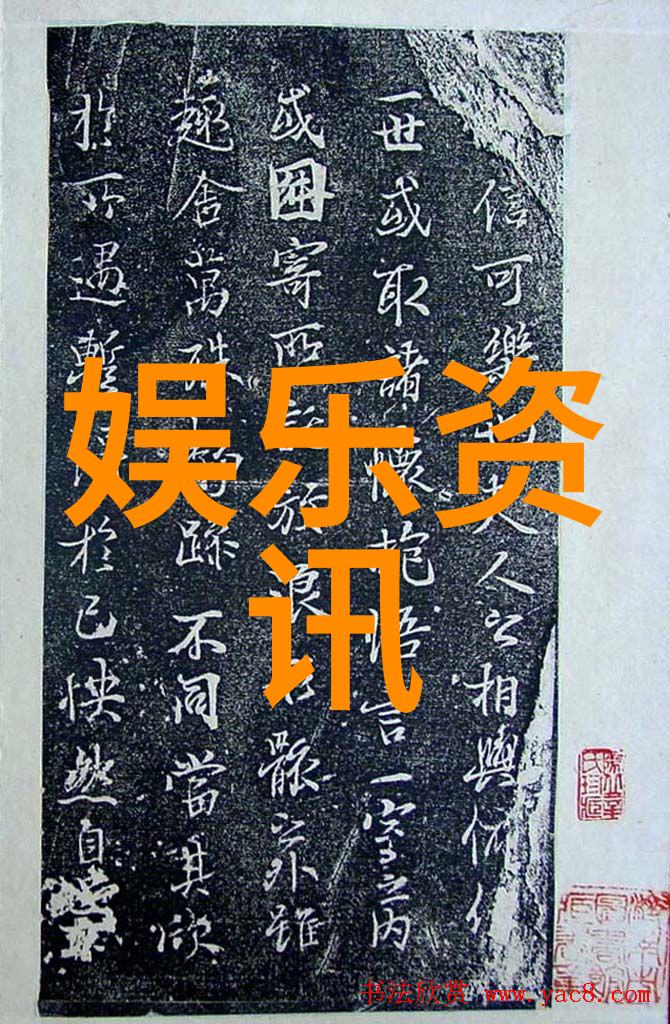 信可樂也夫人之相與俯仰
一世或取諸懷抱悟言一室之內
或因寄所託放浪形骸之外雖
趣舍萬殊靜躁不同當其欣
於所遇暫得於己怏然自
娱乐资
讯
书法欣赏 www.yac8.com